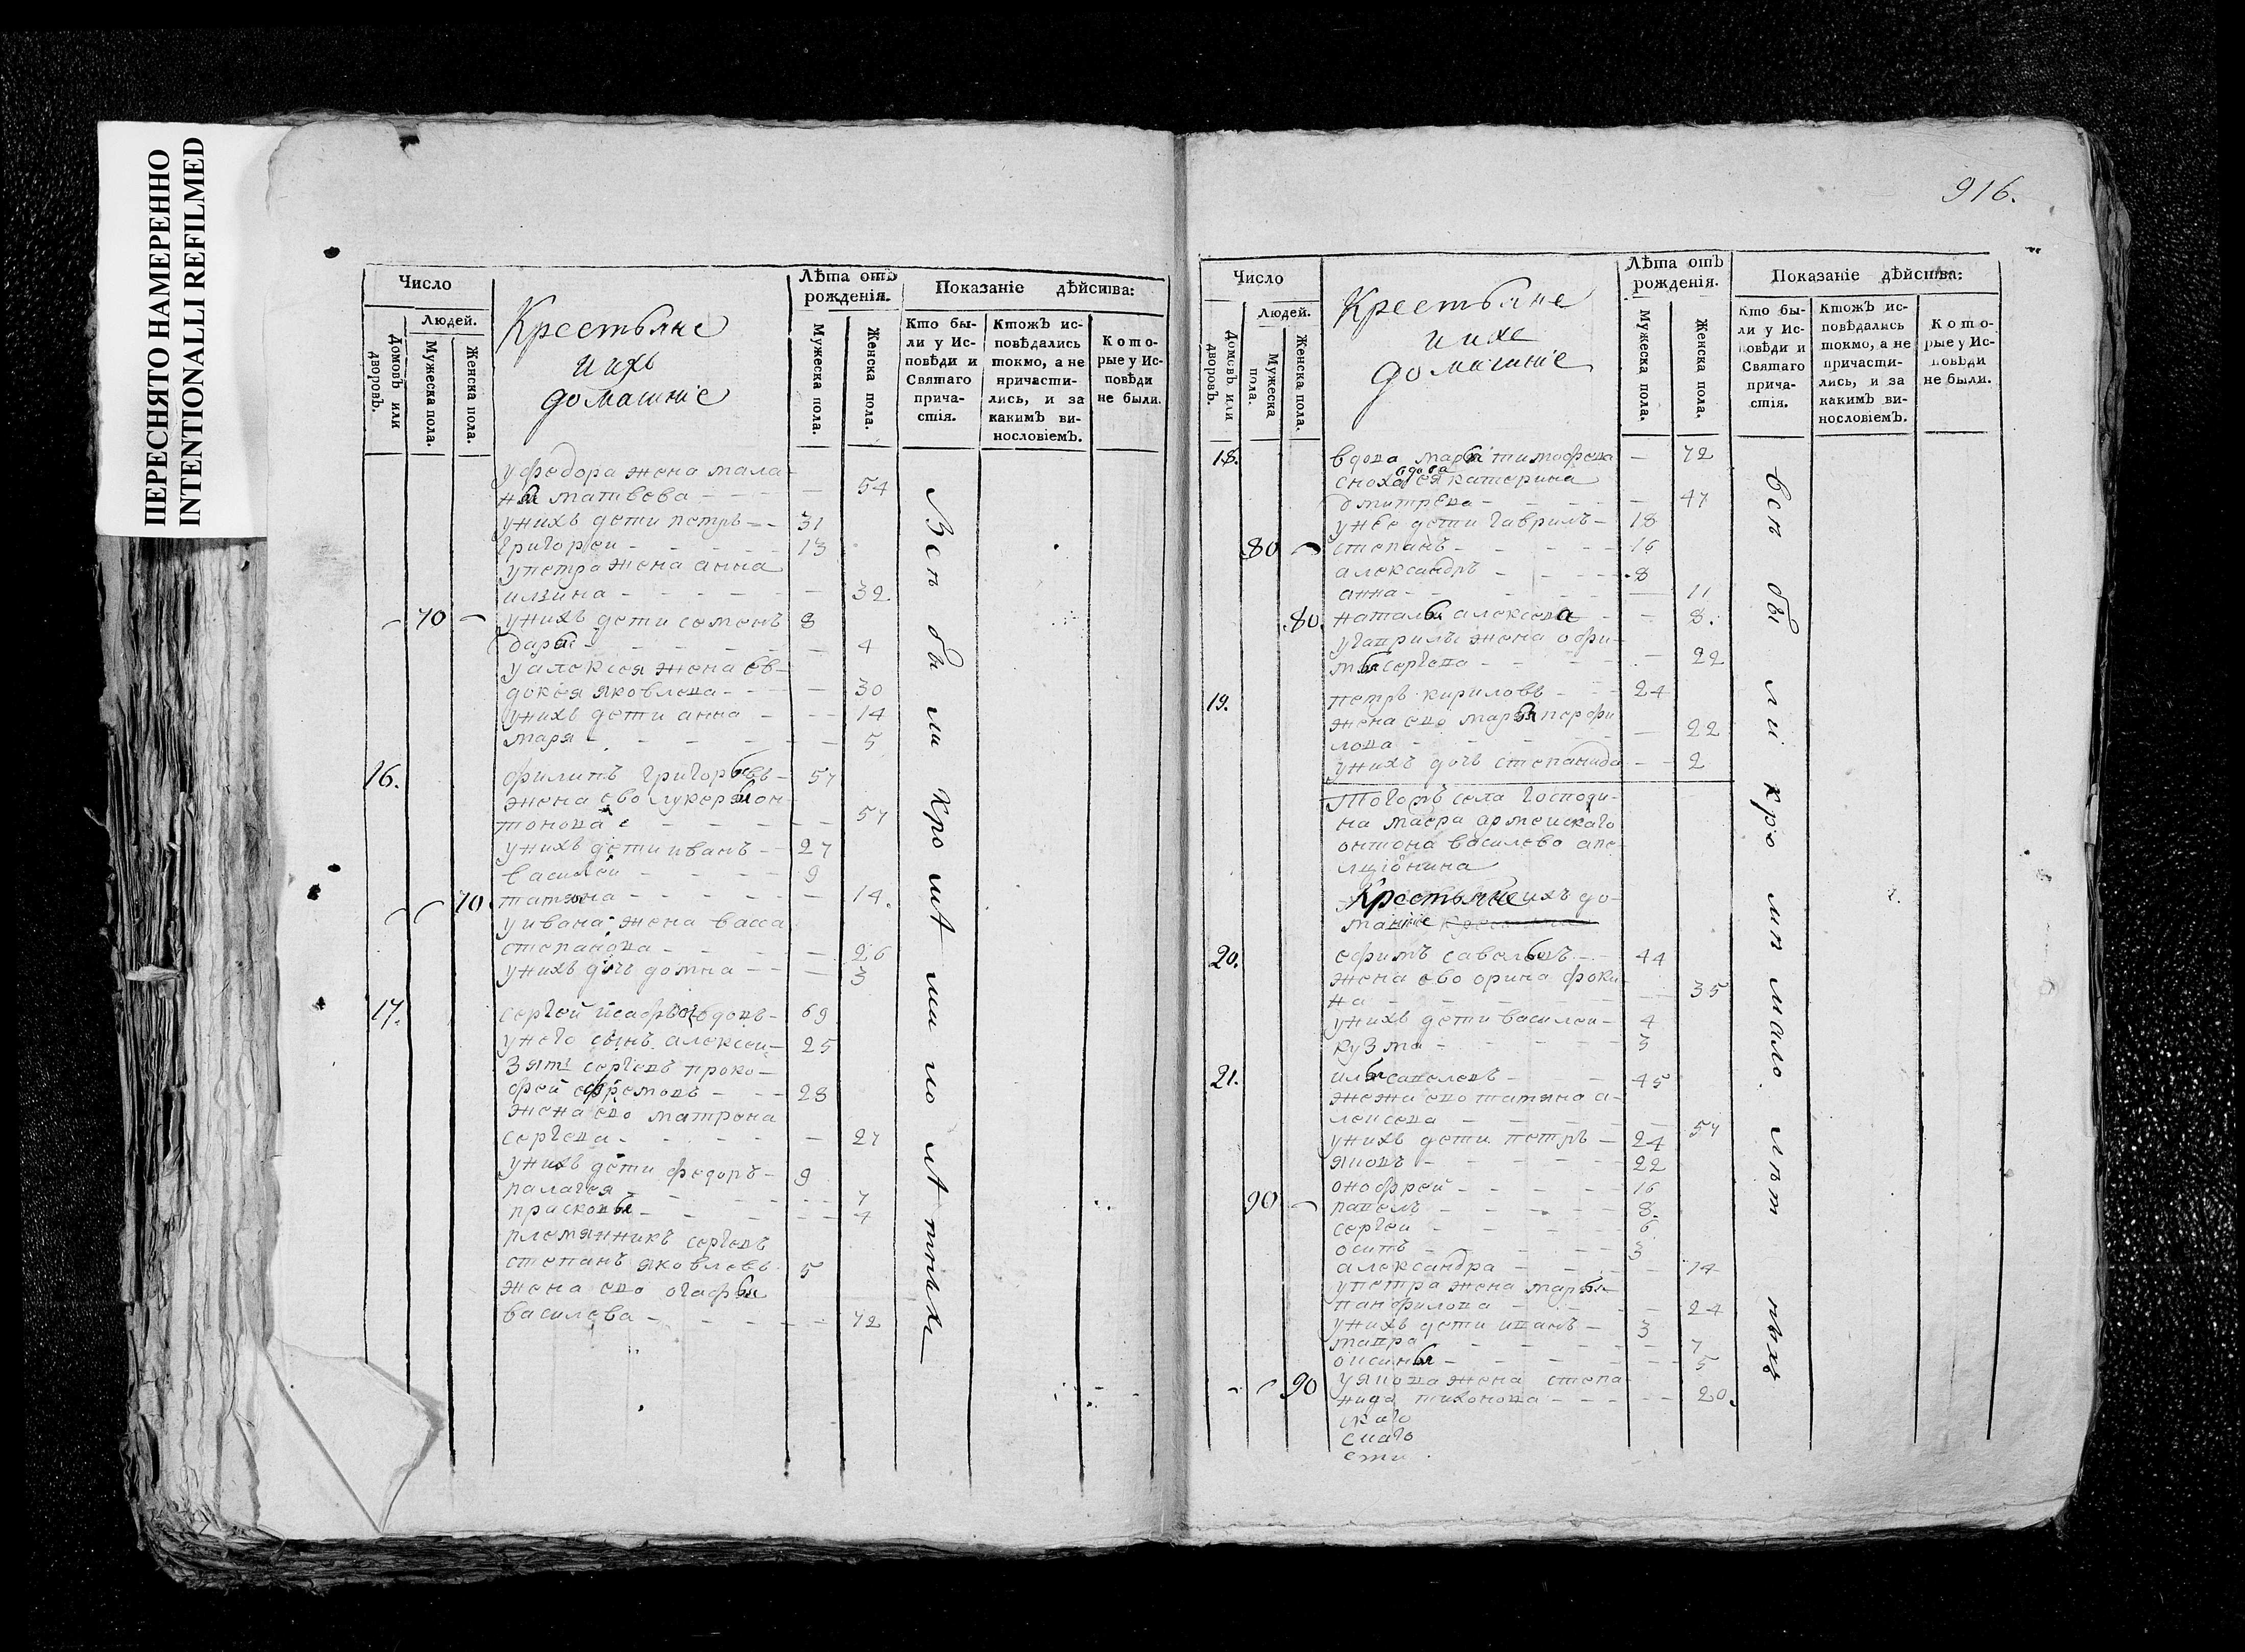 ПЕРЕСНЯТО НАМЕРЕННО
INTENTIONALLI REFILMED
Число
Домовъ или дворовъ.
Людей.
Мужеска пола.
Женска пола.
Крестьяне
и ихъ
домашніе
Лѣта отъ рожденія.
Мужеска пола.
Женска пола.
Показаніе дѣйства:
Кто были у Исповѣди и Святаго причастія.
Ктожъ исповѣдались токмо, а не причастились, и за какимъ винословіемъ.
Которые у Исповѣди не были.
у федора жена мала
нья матвѣева - - - 54
унихъ дети петръ - - 31
григореи - - - 13
упетра жена анна
илина - - - 32
70 унихъ дети семенъ 8
дарья - - - 4
уалексея жена ев-
докея яковлева - - - 30
унихъ дети анна - - - 14
маря - - - 5
16. филипъ григорьевъ - 57
жена ево лукерья он-
тонова - - - 57
унихъ дети иванъ - - 27
василеи - - - 9
70 татяна - - - 14.
уивана жена васса
степанова - - - 26
унихъ дочь домна - - - 3
17. сергей - 69
унего сынъ алексеи - 25
зять сергевъ проко-
фей ефремовъ - - - 28
жена ево матрона
сергева - - - 27
унихъ дети федоръ - 9
палагея - - - 7
прасковья - - - 4
племянникъ сергевъ
степанъ яковлевъ 5
жена ево огафья
василева - - - 42
Всѣ были кро
916.
Число
Домовъ или дворовъ.
Людей.
Мужеска пола.
Женска пола.
Крестьяне
и ихъ
домашніе
Лѣта отъ рожденія.
Мужеска пола.
Женска пола.
Показаніе дѣйства:
Кто были у Исповѣди и Святаго причастія.
Ктожъ исповѣдались токмо, а не причастились, и за какимъ винословіемъ.
Которые у Исповѣди не были.
18. вдова марья тимофева - 72
вдова
сноха ея катерина
дмитрева - - - 47
унее дети гаврилъ - 18
80 степанъ - - - 16
александръ - - - 8
анна - - - 11
80. наталья алексева - - 8.
угаврилы жена офи-
мья сергева - - - 22
19. петръ кириловъ - - - 24
жена ево марья перфи
лова - - - 22
унихъ дочь степанида - - 2
Тогожъ села господи-
на маера армейскаго
онтона василева апе-
Крестьяне ихъ до-
машніе
20. ефимъ савельевъ - - 44
жена ево орина фоки
на - - - 35
унихъ дети василеи - 4
кузма - - - 3
21. илья савелевъ - - 45
жена ево татяна а-
лексева - - - 57
унихъ дети петръ - 24
яковъ - - - 22
онофреи - - - 16
90 павелъ - - - 8.
сергеи - - - 6.
осипъ - - - 3
александра - - - 14
упетра жена марья
панфилова - - - 24
унихъ дети иванъ - 3
мавра - - - 7
оксинья - - - 5
90 уякова жена степа
нида тихонова - - - 20.
скаго
скаго
сти
всѣ были кро мѣ мало лѣт нѣхъ